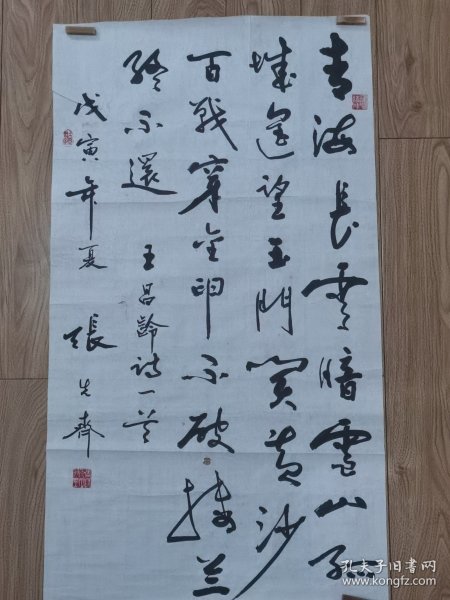 青海長雲暗雪山孤
城遥望玉門關黄沙
百戰穿金甲不破楼兰
終不還 王昌齡詩一首
戊寅年夏 張先齊
孔夫子旧书网
www.kongfz.com